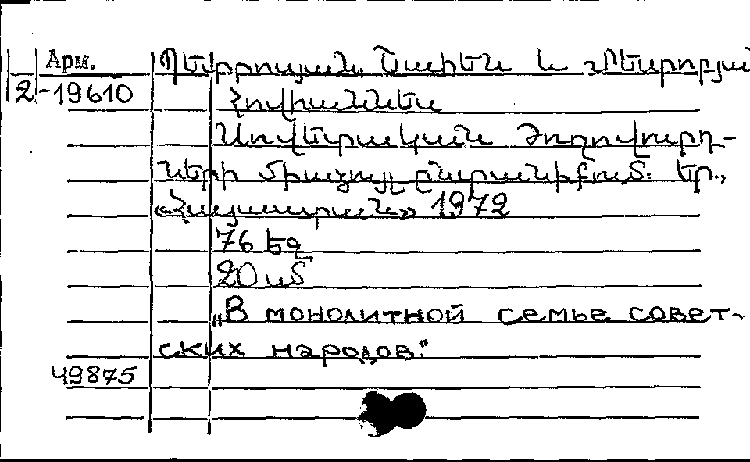 Арм.
2-19610
Պետրոսյան Շահեն և Պետրոսյան
Հովհաննես
Սովետական ժողովուրդ-
ների միասնական ընտանիքում: Եր.,
«Հայաստան» 1972
76 եջ
20 սմ
„В монолитной семье совет-
ских народов."
49875